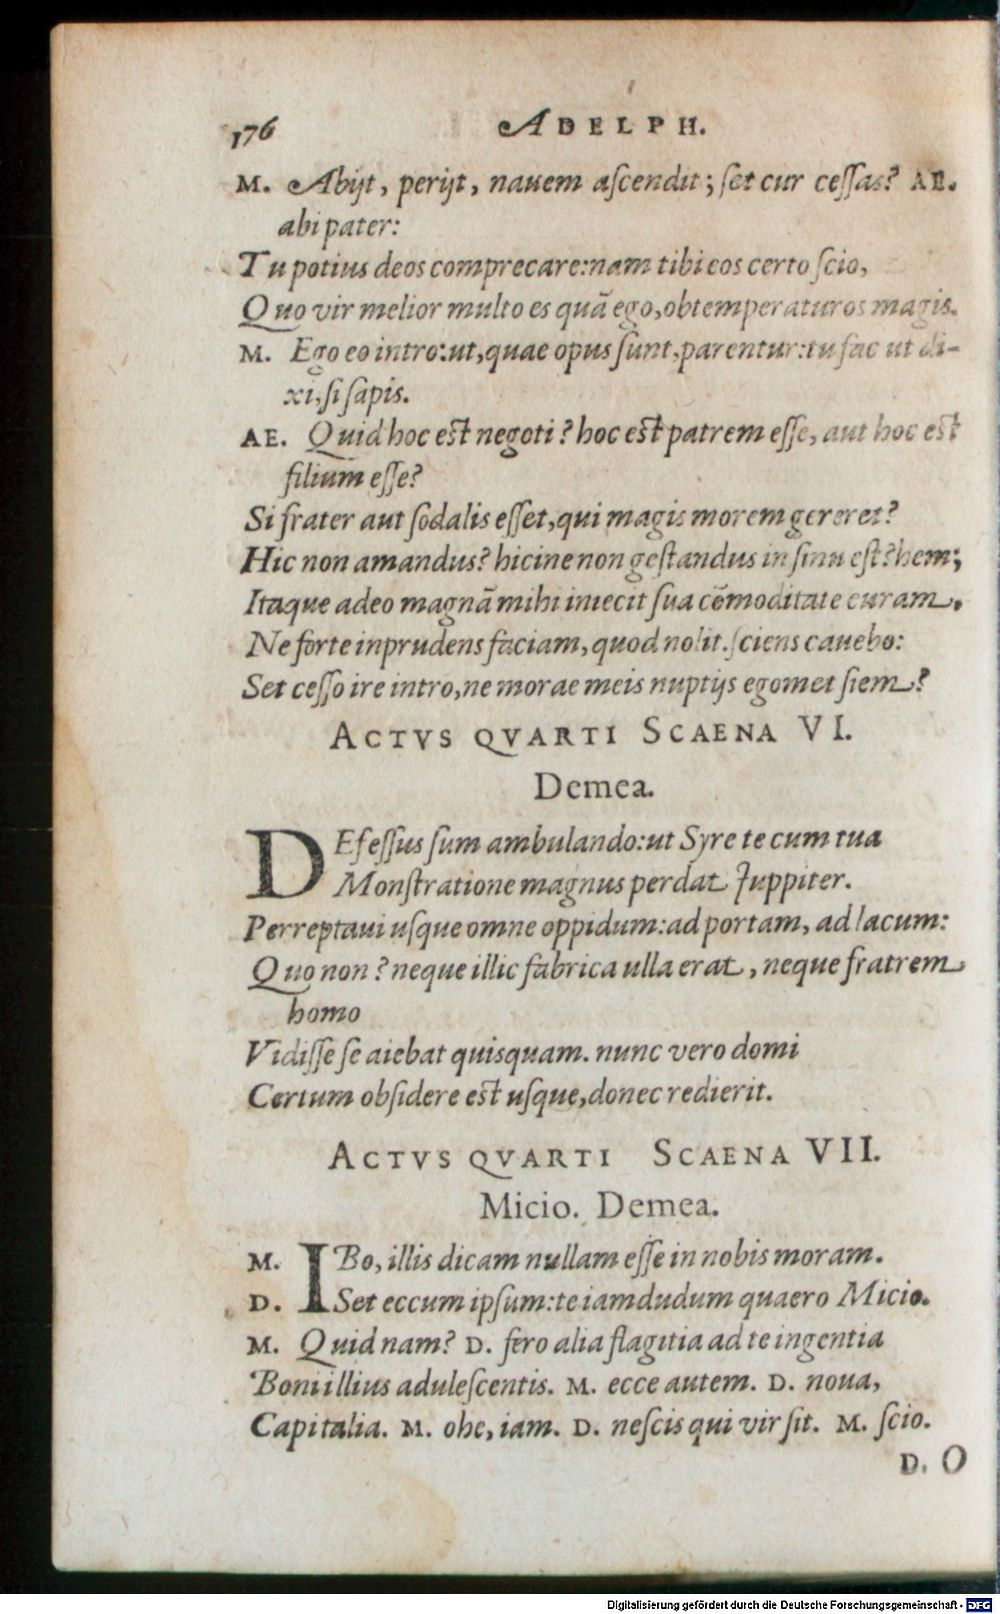 176 ADELPH.
M. Abijt, perijt, nauem ascendit; set cur cessas? AE.
abi pater:
Tu potius deos comprecare: nam tibi eos certo scio,
Quo vir melior multo es quã ego, obtemperaturos magis.
M. Ego eo intro: ut, quae opus sunt, parentur: tu fac ut di-
xi, si sapis.
AE. Quid hoc est negoti? hoc est patrem esse, aut hoc est
filium esse?
Si frater aut sodalis esset, qui magis morem gereret?
Hic non amandus? hicine non gestandus in sinu est? hem;
Itaque adeo magnã mihi iniecit sua cõmoditate curam.
Ne forte inprudens faciam, quod nolit. sciens cauebo:
Set cesso ire intro, ne morae meis nuptijs egomet siem?
ACTVS QVARTI SCAENA VI.
Demea.
DEfessus sum ambulando: ut Syre te cum tua
Monstratione magnus perdat Juppiter.
Perreptaui usque omne oppidum: ad portam, ad lacum:
Quo non? neque illic fabrica ulla erat, neque fratrem
homo
Vidisse se aiebat quisquam. nunc vero domi
Certum obsidere est usque, donec redierit.
ACTVS QVARTI SCAENA VII.
Micio. Demea.
M. IBo, illis dicam nullam esse in nobis moram.
D. Set eccum ipsum: te iamdudum quaero Micio.
M. Quid nam? D. fero alia flagitia ad te ingentia
Boni illius adulescentis. M. ecce autem. D. noua,
Capitalia. M. ohe, iam. D. nescis qui vir sit. M. scio.
D. O
Digitalisierung gefördert durch die Deutsche Forschungsgemeinschaft - DFG